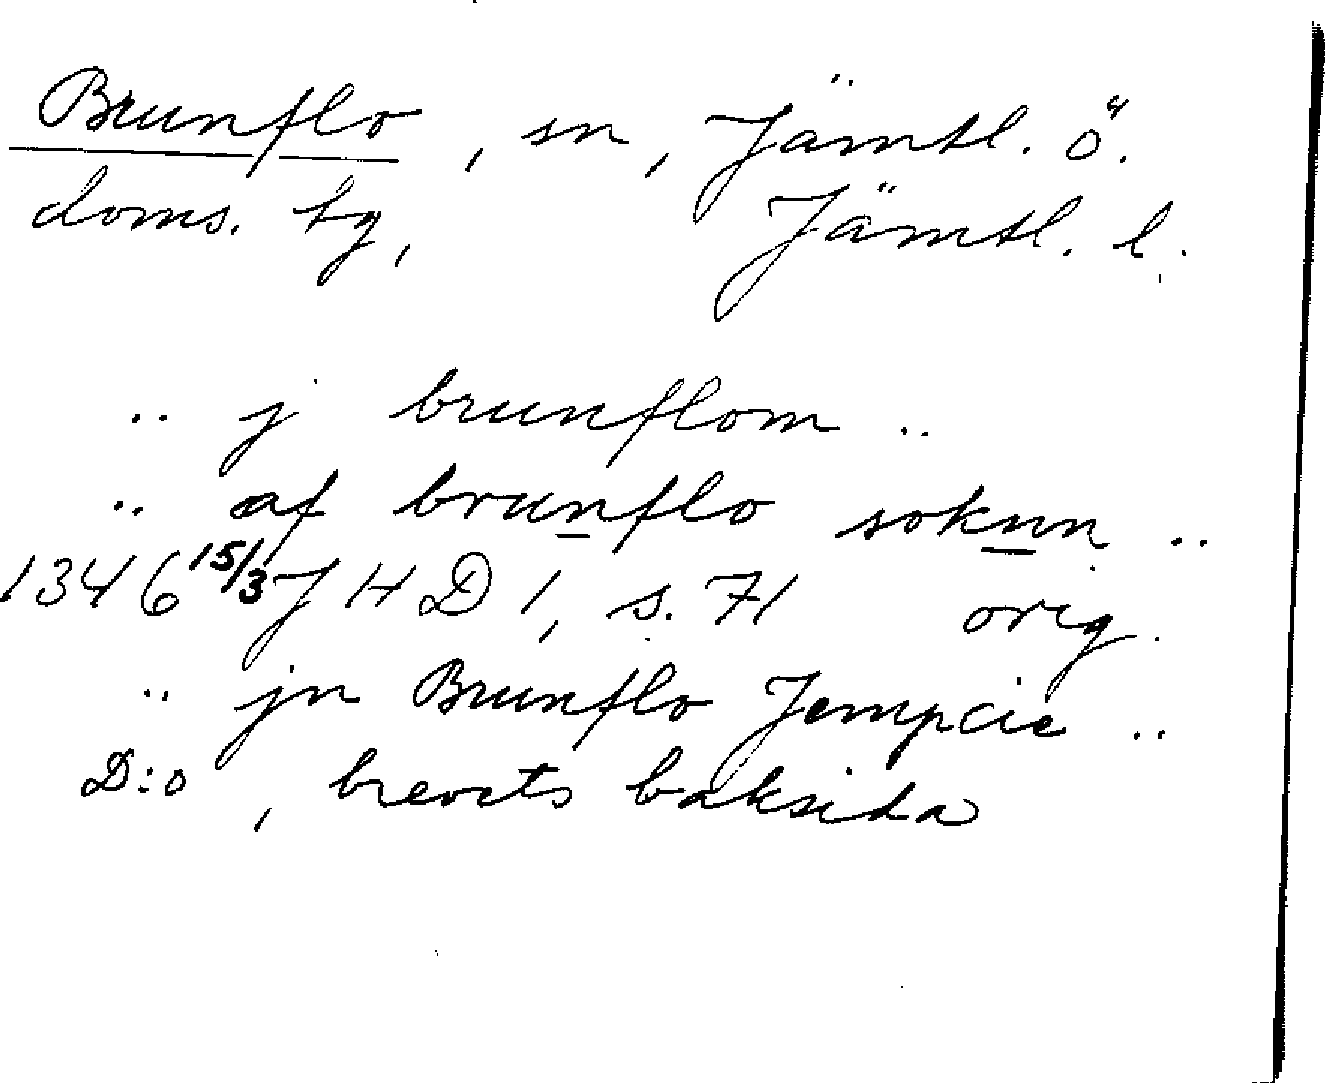 Brunflo, sn, Jämtl. ö.
doms. tg, Jämtl. l.
.. j brunflom ..
.. af brunflo soknn ..
1346 15/3 JHD 1, s. 71 orig.
.. jn Brunflo Jempcie ..
D:o, brevets baksida